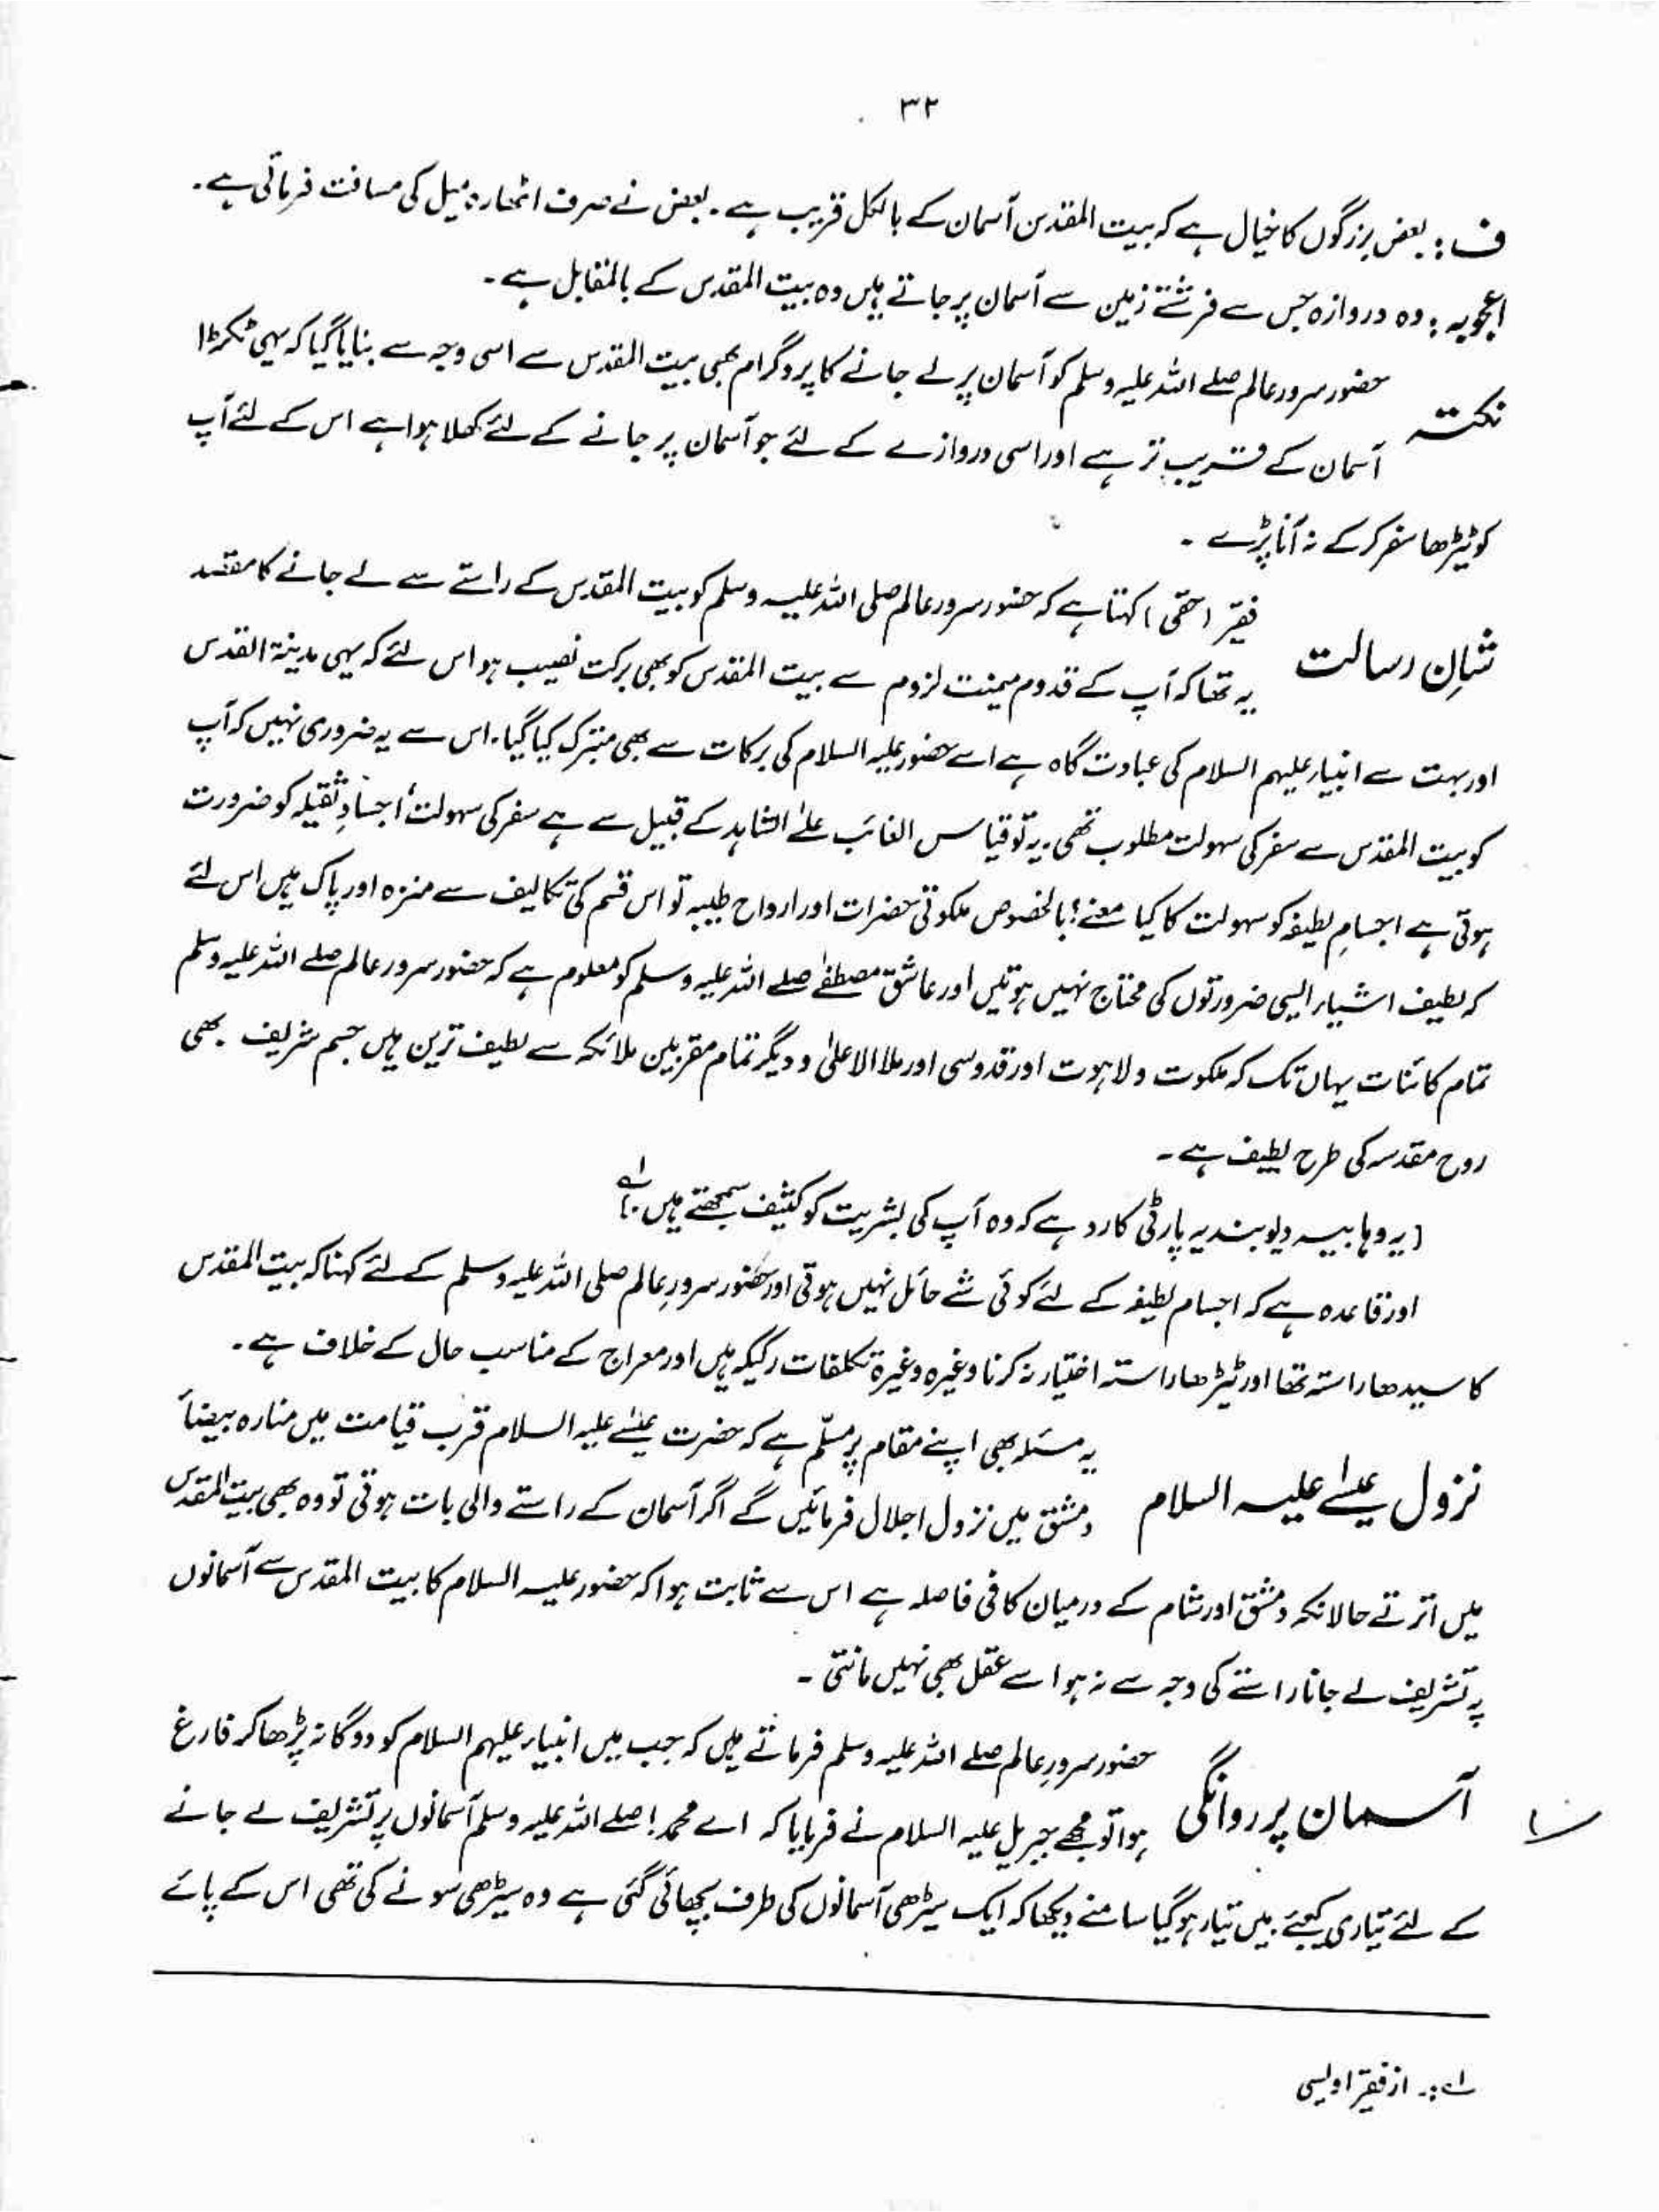 ۳۲
ف : بعض بزرگوں کا خیال ہے کہ بیت المقدس آسمان کے بالکل قریب ہے ۔ بعض نے صرف اٹھارہ میل کی مسافت فرمائی ہے ۔
اعجوبہ : وہ دروازہ جس سے فرشتے زمین سے آسمان پر جاتے ہیں وہ بیت المقدس کے بالمقابل ہے ۔
نکتہ حضور سرور عالم صلے اللہ علیہ وسلم کو آسمان پر لے جانے کا پروگرام بھی بیت المقدس سے اسی وجہ سے بنایا گیا کہ یہی ٹکڑا
آسمان کے قریب تر ہے اور اسی دروازے کے لئے جو آسمان پر جانے کے لئے کھلا ہوا ہے اس کے لئے آپ
کو ٹیڑھا سفر کر کے نہ آنا پڑے ۔
شانِ رسالت فقیر (حقی) کہتا ہے کہ حضور سرور عالم صلی اللہ علیہ وسلم کو بیت المقدس کے راستے سے لے جانے کا مقصد
یہ تھا کہ آپ کے قدوم میمنت لزوم سے بیت المقدس کو بھی برکت نصیب ہو اس لئے کہ یہی مدینۃ القدس
اور بہت سے انبیاء علیہم السلام کی عبادت گاہ ہے اسے حضور علیہ السلام کی برکات سے بھی متبرک کیا گیا ۔ اس سے یہ ضروری نہیں کہ آپ
کو بیت المقدس سے سفر کی سہولت مطلوب تھی ۔ یہ تو قیاس الغائب علےٰ الشاہد کے قبیل سے ہے سفر کی سہولت اجسادِ ثقیلہ کو ضرورت
ہوتی ہے اجسامِ لطیفہ کو سہولت کا کیا معنے ؛ بالخصوص ملکوتی حضرات اور ارواح طیبہ تو اس قسم کی تکالیف سے منزہ اور پاک ہیں اس لئے
کہ لطیف اشیاء ایسی ضرورتوں کی محتاج نہیں ہوتیں اور عاشقِ مصطفےٰ صلے اللہ علیہ وسلم کو معلوم ہے کہ حضور سرور عالم صلے اللہ علیہ وسلم
تمام کائنات یہاں تک کہ ملکوت و لاہوت اور قدوسی اور ملا الاعلیٰ و دیگر تمام مقربین ملائکہ سے لطیف ترین ہیں جسم شریف بھی
روح مقدسہ کی طرح لطیف ہے ۔
(یہ وہابیہ دیوبندیہ پارٹی کا رد ہے کہ وہ آپ کی بشریت کو کثیف سمجھتے ہیں ۔) لے
اور قاعدہ ہے کہ اجسام لطیفہ کے لئے کوئی شے حائل نہیں ہوتی اور حضور سرورِ عالم صلی اللہ علیہ وسلم کے لئے کہنا کہ بیت المقدس
کا سیدھا راستہ تھا اور ٹیڑھا راستہ اختیار نہ کرنا وغیرہ وغیرہ تکلفات رکیکہ ہیں اور معراج کے مناسب حال کے خلاف ہے ۔
نزول عیسٰے علیہ السلام یہ مسئلہ بھی اپنے مقام پر مسلّم ہے کہ حضرت عیسٰے علیہ السلام قرب قیامت میں منارہ بیضاً
دمشق میں نزول اجلال فرمائیں گے اگر آسمان کے راستے والی بات ہوتی تو وہ بھی بیت المقدس
میں اترتے حالانکہ دمشق اور شام کے درمیان کافی فاصلہ ہے اس سے ثابت ہوا کہ حضور علیہ السلام کا بیت المقدس سے آسمانوں
پہ تشریف لے جانا راستے کی وجہ سے نہ ہوا سے عقل بھی نہیں مانتی ۔
آسمان پر روانگی حضور سرورِ عالم صلے اللہ علیہ وسلم فرماتے ہیں کہ جب میں انبیاء علیہم السلام کو دوگانہ پڑھا کر فارغ
ہوا تو مجھے جبریل علیہ السلام نے فرمایا کہ اے محمد ! صلے اللہ علیہ وسلم آسمانوں پر تشریف لے جانے
کے لئے تیاری کیجئے ۔ میں تیار ہو گیا سامنے دیکھا کہ ایک سیڑھی آسمانوں کی طرف بچھائی گئی ہے وہ سیڑھی سونے کی تھی اس کے پائے
لے :۔ از فقیر اویسی